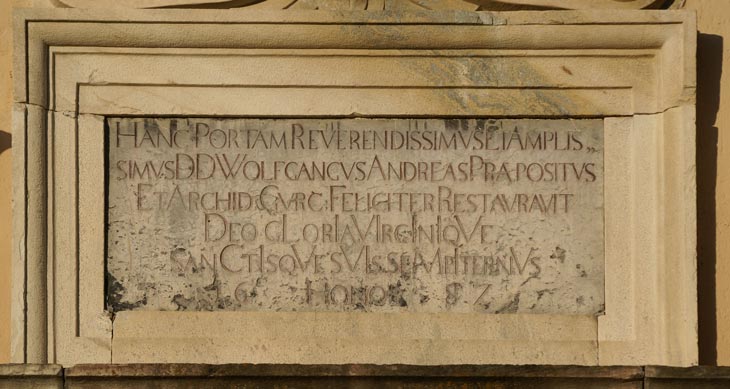 HANC PORTAM REVERENDISSIMVS ET AMPLIS„
SIMVS D.D. WOLFGANGVS ANDREAS PRÆPOSITVS
ET ARCHID: GVRC: FELICITER RESTAVRAVIT
DEO GLORIA VIRGINIQVE
SANCTISQVE SVIS SEMPITERNVS
16 HONOR 82